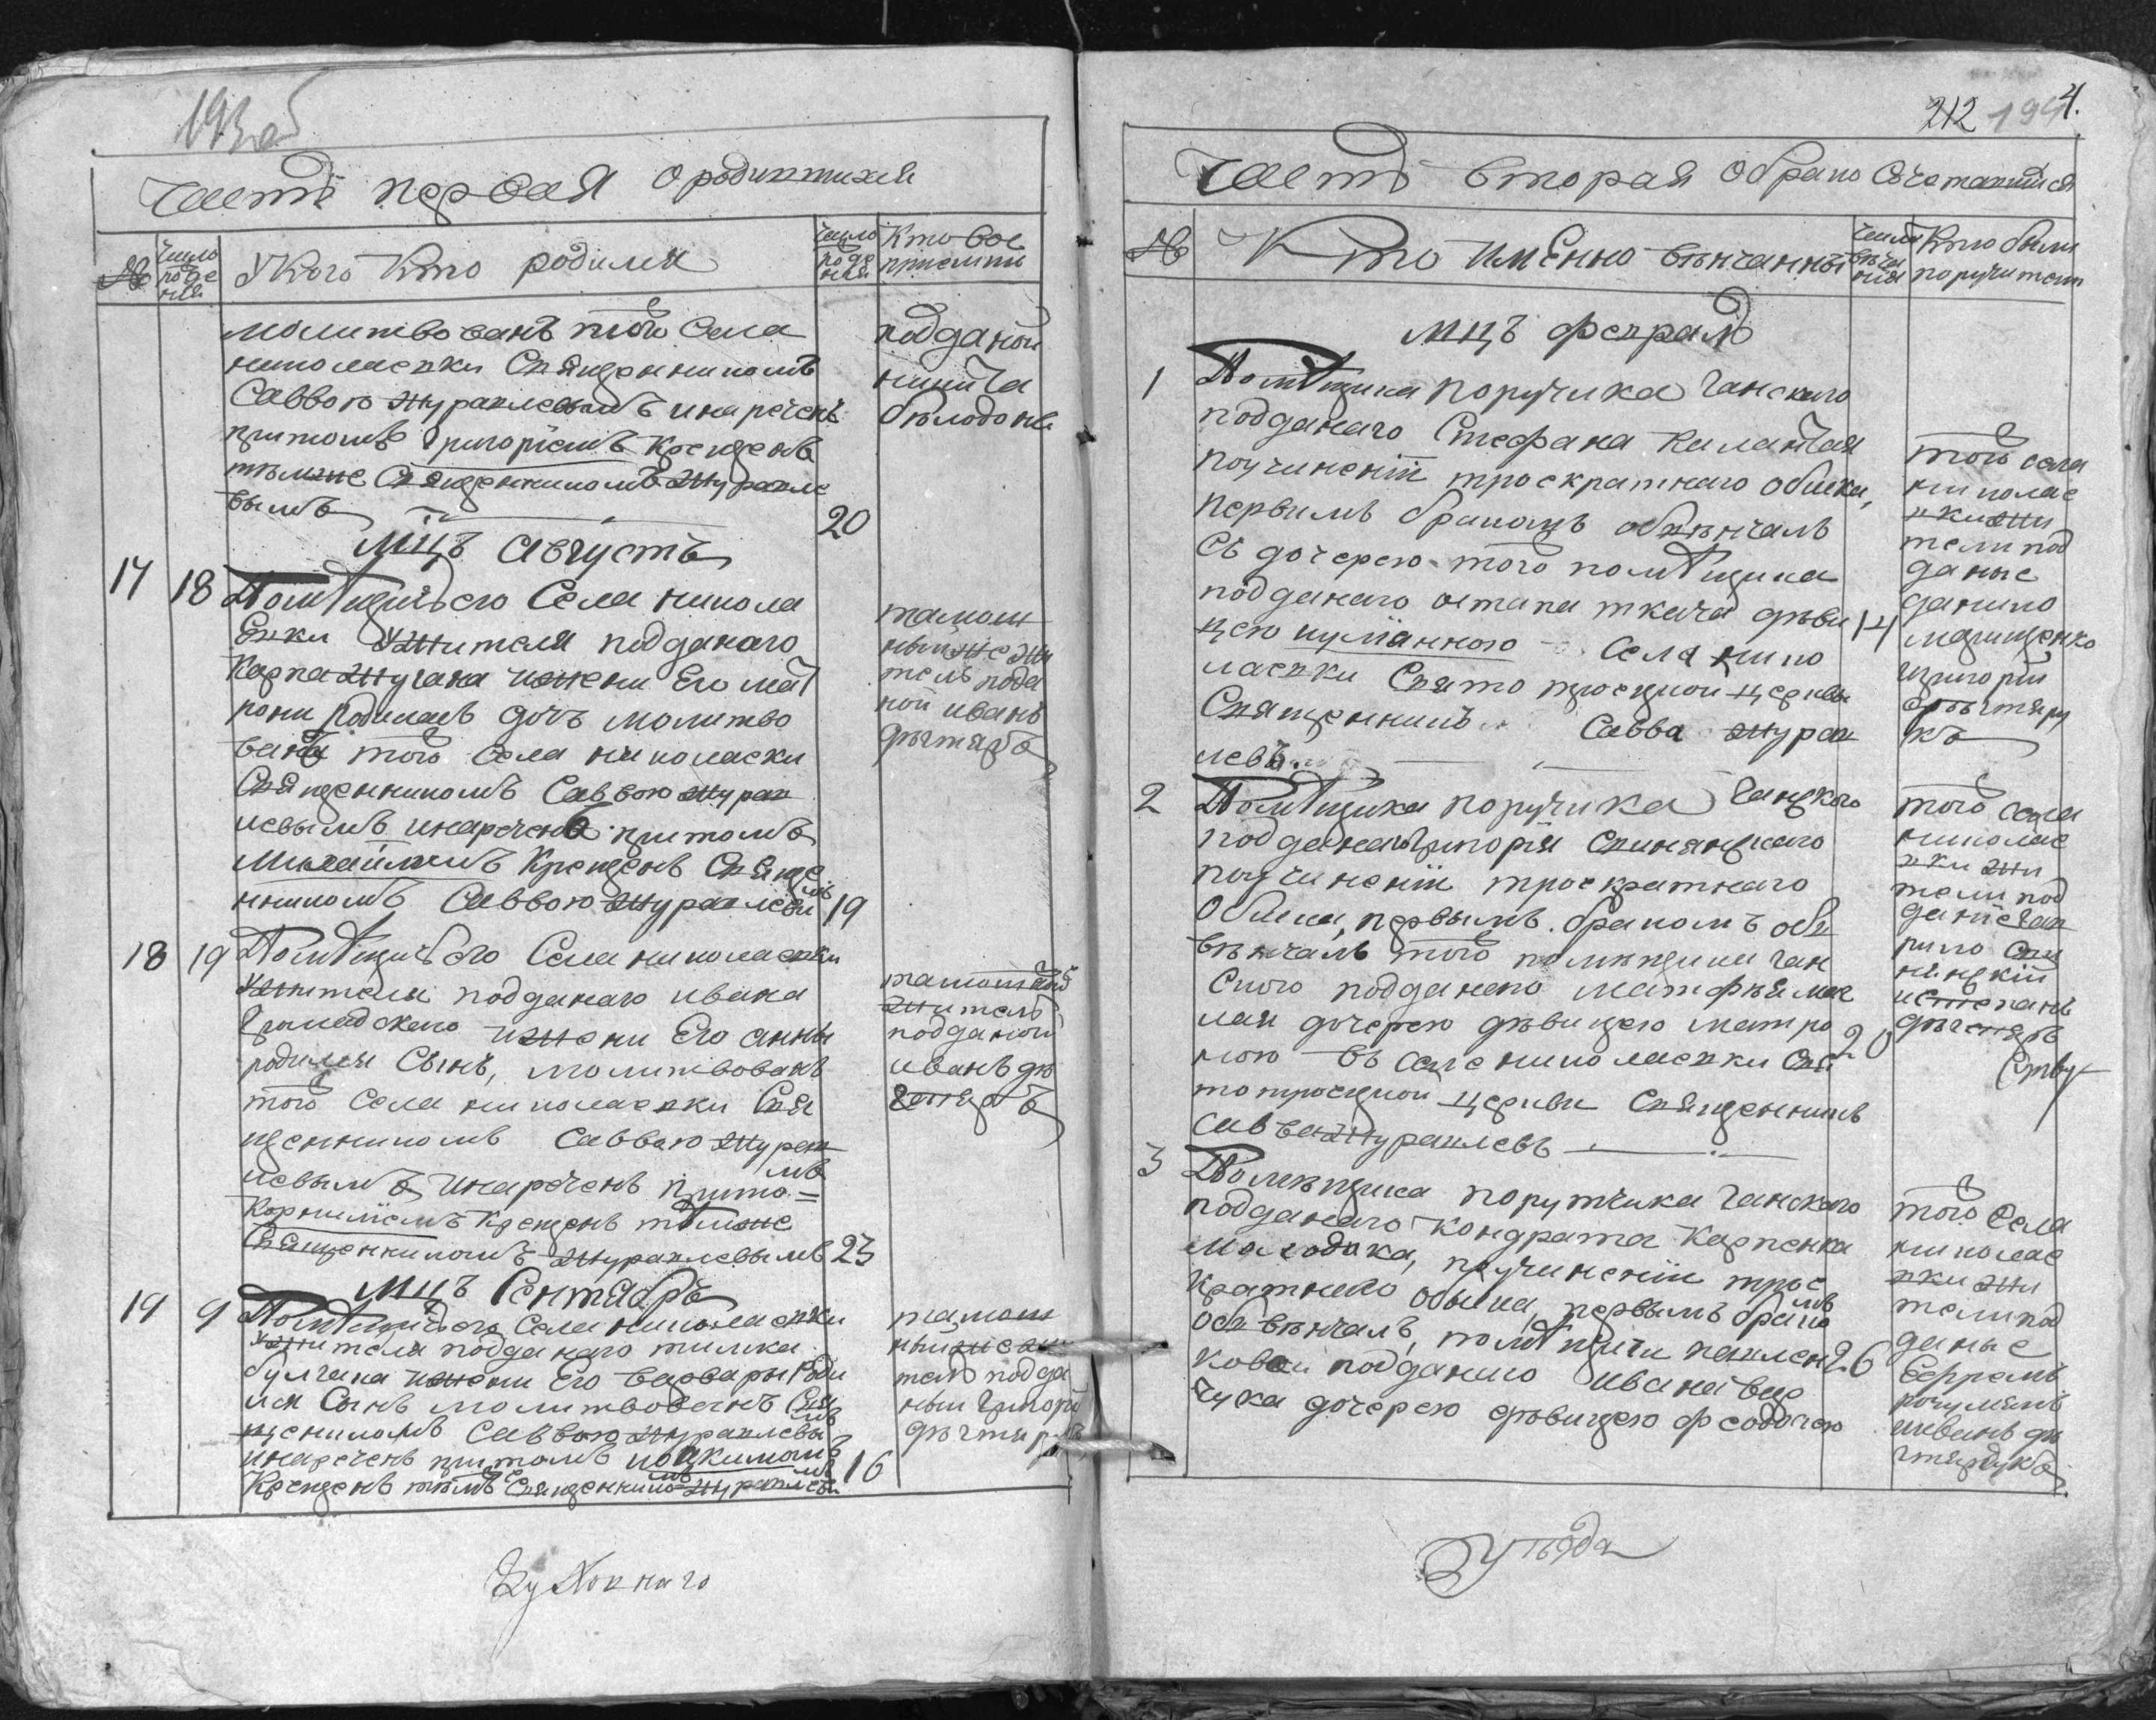 193об
Часть первая О родившихся
№
число
рожде
ния
У кого кто родился
число
креще
ния
Кто вос
приемник
молитвованъ того села
николаевки Священникомъ
Саввою журавлевымъ инареченъ
притомъ Григориемъ крещенъ
темже Священникомъ Журавле
вымъ
20
подданой
никита
мцъ августъ
17 18 Помѣщичьего Села никола
Евки жителя подданаго
Карпа ижени Его мат
рони родилась дочь молитво
вана того Села николаевки
Священникомъ Саввою журав
левымъ инаречена притомъ
крещена Свяще
нникомъ Саввою журавлевымъ 19
тамош
ныйже жи
тель подда
ной иванъ
18 19 Помѣщичьего Села николаевки
жителя подданаго ивана
Громадского ижени Его анны
родился Сынъ, молитвованъ
того Села николаевки Свя
щенникомъ Саввою журав
левымъ инареченъ притомъ
Корнилiемъ крещенъ темже
Священникомъ журавлевымъ 23
тамошной
житель
подданой
иванъ
мцъ Сентябрь
19 9 Помѣщичьего Села николаевки
жителя подданаго тимка
булгака ижени Его варвары роди
лся Сынъ молитвованъ Свя
щеникомъ Саввою журавлевымъ
инареченъ притомъ иоакимомъ
крещенъ темже Священникомъ журавлевымъ 16
тамош
ныйже жи
тель подда
ный григорий
Духовнаго
212 194
4.
Часть вторая О бракосочетавшихся
№
Кто имЕнно вѣнчанны
число
вѣнча
ния
Кто были
поручители
мцъ февраль
1 Помѣщика поручика Ганского
подданаго Стефана
поучиненiи троекратнаго обыска,
первымъ бракомъ обвѣнчалъ
Съ дочерею того помѣщика
подданаго остапа ткача дѣви
цею иулiанною Села нико
лаевки Свято троецкой церкви
Священникъ Савва журав
левъ
14
того села
николае
вки жи
тели под
даные
данило
григорий
2 Помѣщика поручика Ганского
подданаго григорiя
поучиненiи троекратнаго
Обыска, первымъ бракомъ об
вѣнчалъ того помѣщика ган
ского подданаго матфѣя
дочерею дѣвицею матро
ною въ селе николаевки Свя
тотроецкой церкви Священникъ
Савва журавлевъ
20
того села
николае
вки жи
тели под
даные гав
рило
истепанъ
3 Помѣщика порутчика Ганского
подданаго кондрата Карпенка
поучиненiи трое
кратнаго обыска, первымъ бракомъ
обвѣнчалъ, помѣщици павлен
ковой подданаго ивана
чука дочерею дѣвицею феодосею
26
того Села
николае
вки жи
тели под
даные
Ефремъ
иванъ
Уѣзда